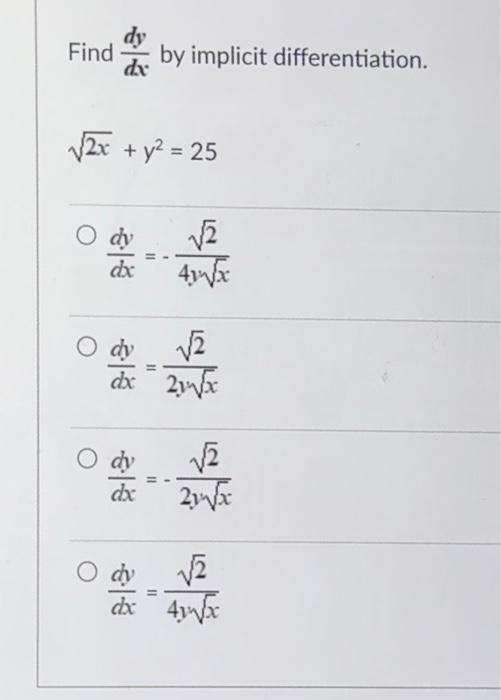 Find dy/dx by implicit differentiation.
√2x + y² = 25
dy/dx = - √2/4y√x
dy/dx = √2/2y√x
dy/dx = - √2/2y√x
dy/dx = √2/4y√x